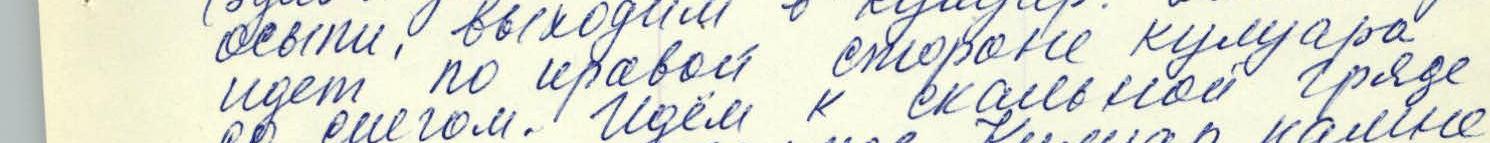 осыпи, выходим в кулуар.
идет по правой стороне кулуара
со снегом. Идём к скальной гряде
Кулуар камне